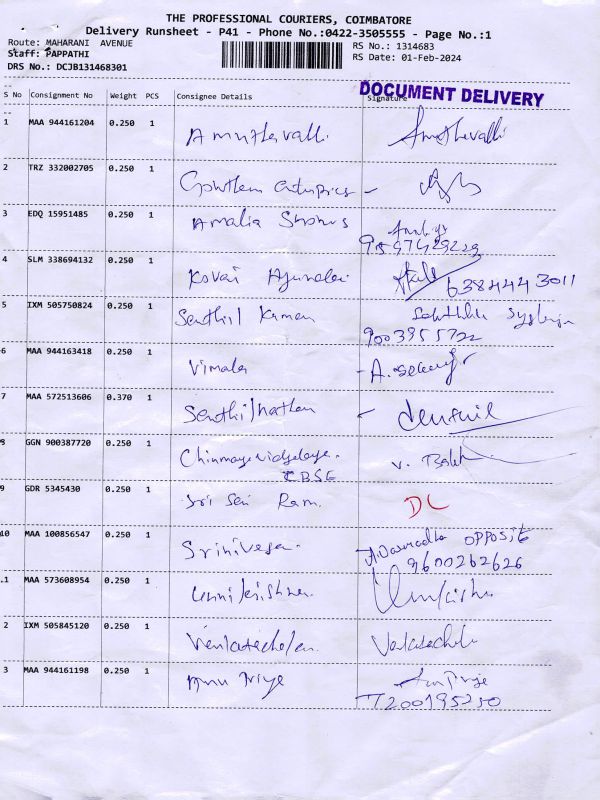 THE PROFESSIONAL COURIERS, COIMBATORE
Delivery Runsheet - P41 - Phone No.:0422-3505555 - Page No.:1
Route: MAHARANI AVENUE
RS No.: 1314683
Staff: PAPPATHI
RS Date: 01-Feb-2024
DRS No.: DCJB131468301
DOCUMENT DELIVERY
S No Consignment No Weight PCS Consignee Details Signature
1 MAA 944161204 0.250 1 Amuthavalli Amuthavalli
2 TRZ 332002705 0.250 1 Gowthem
3 EDQ 15951485 0.250 1 Amalia
4 SLM 338694132 0.250 1 Kovai 6384443011
5 IXM 505750824 0.250 1 Senthil Kumar
9003955722
6 MAA 944163418 0.250 1 Vimala
7 MAA 572513606 0.370 1 Senthilnathan
8 GGN 900387720 0.250 1 Chinmaya Vidyalaya.
CBSE
9 GDR 5345430 0.250 1 Sri Sai Ram DL
10 MAA 100856547 0.250 1 Srinivasan OPPOSIT
9600262626
.1 MAA 573608954 0.250 1 Unnikrishnan
2 IXM 505845120 0.250 1 Venkatachalam
3 MAA 944161198 0.250 1 Anu Priya
7200195250